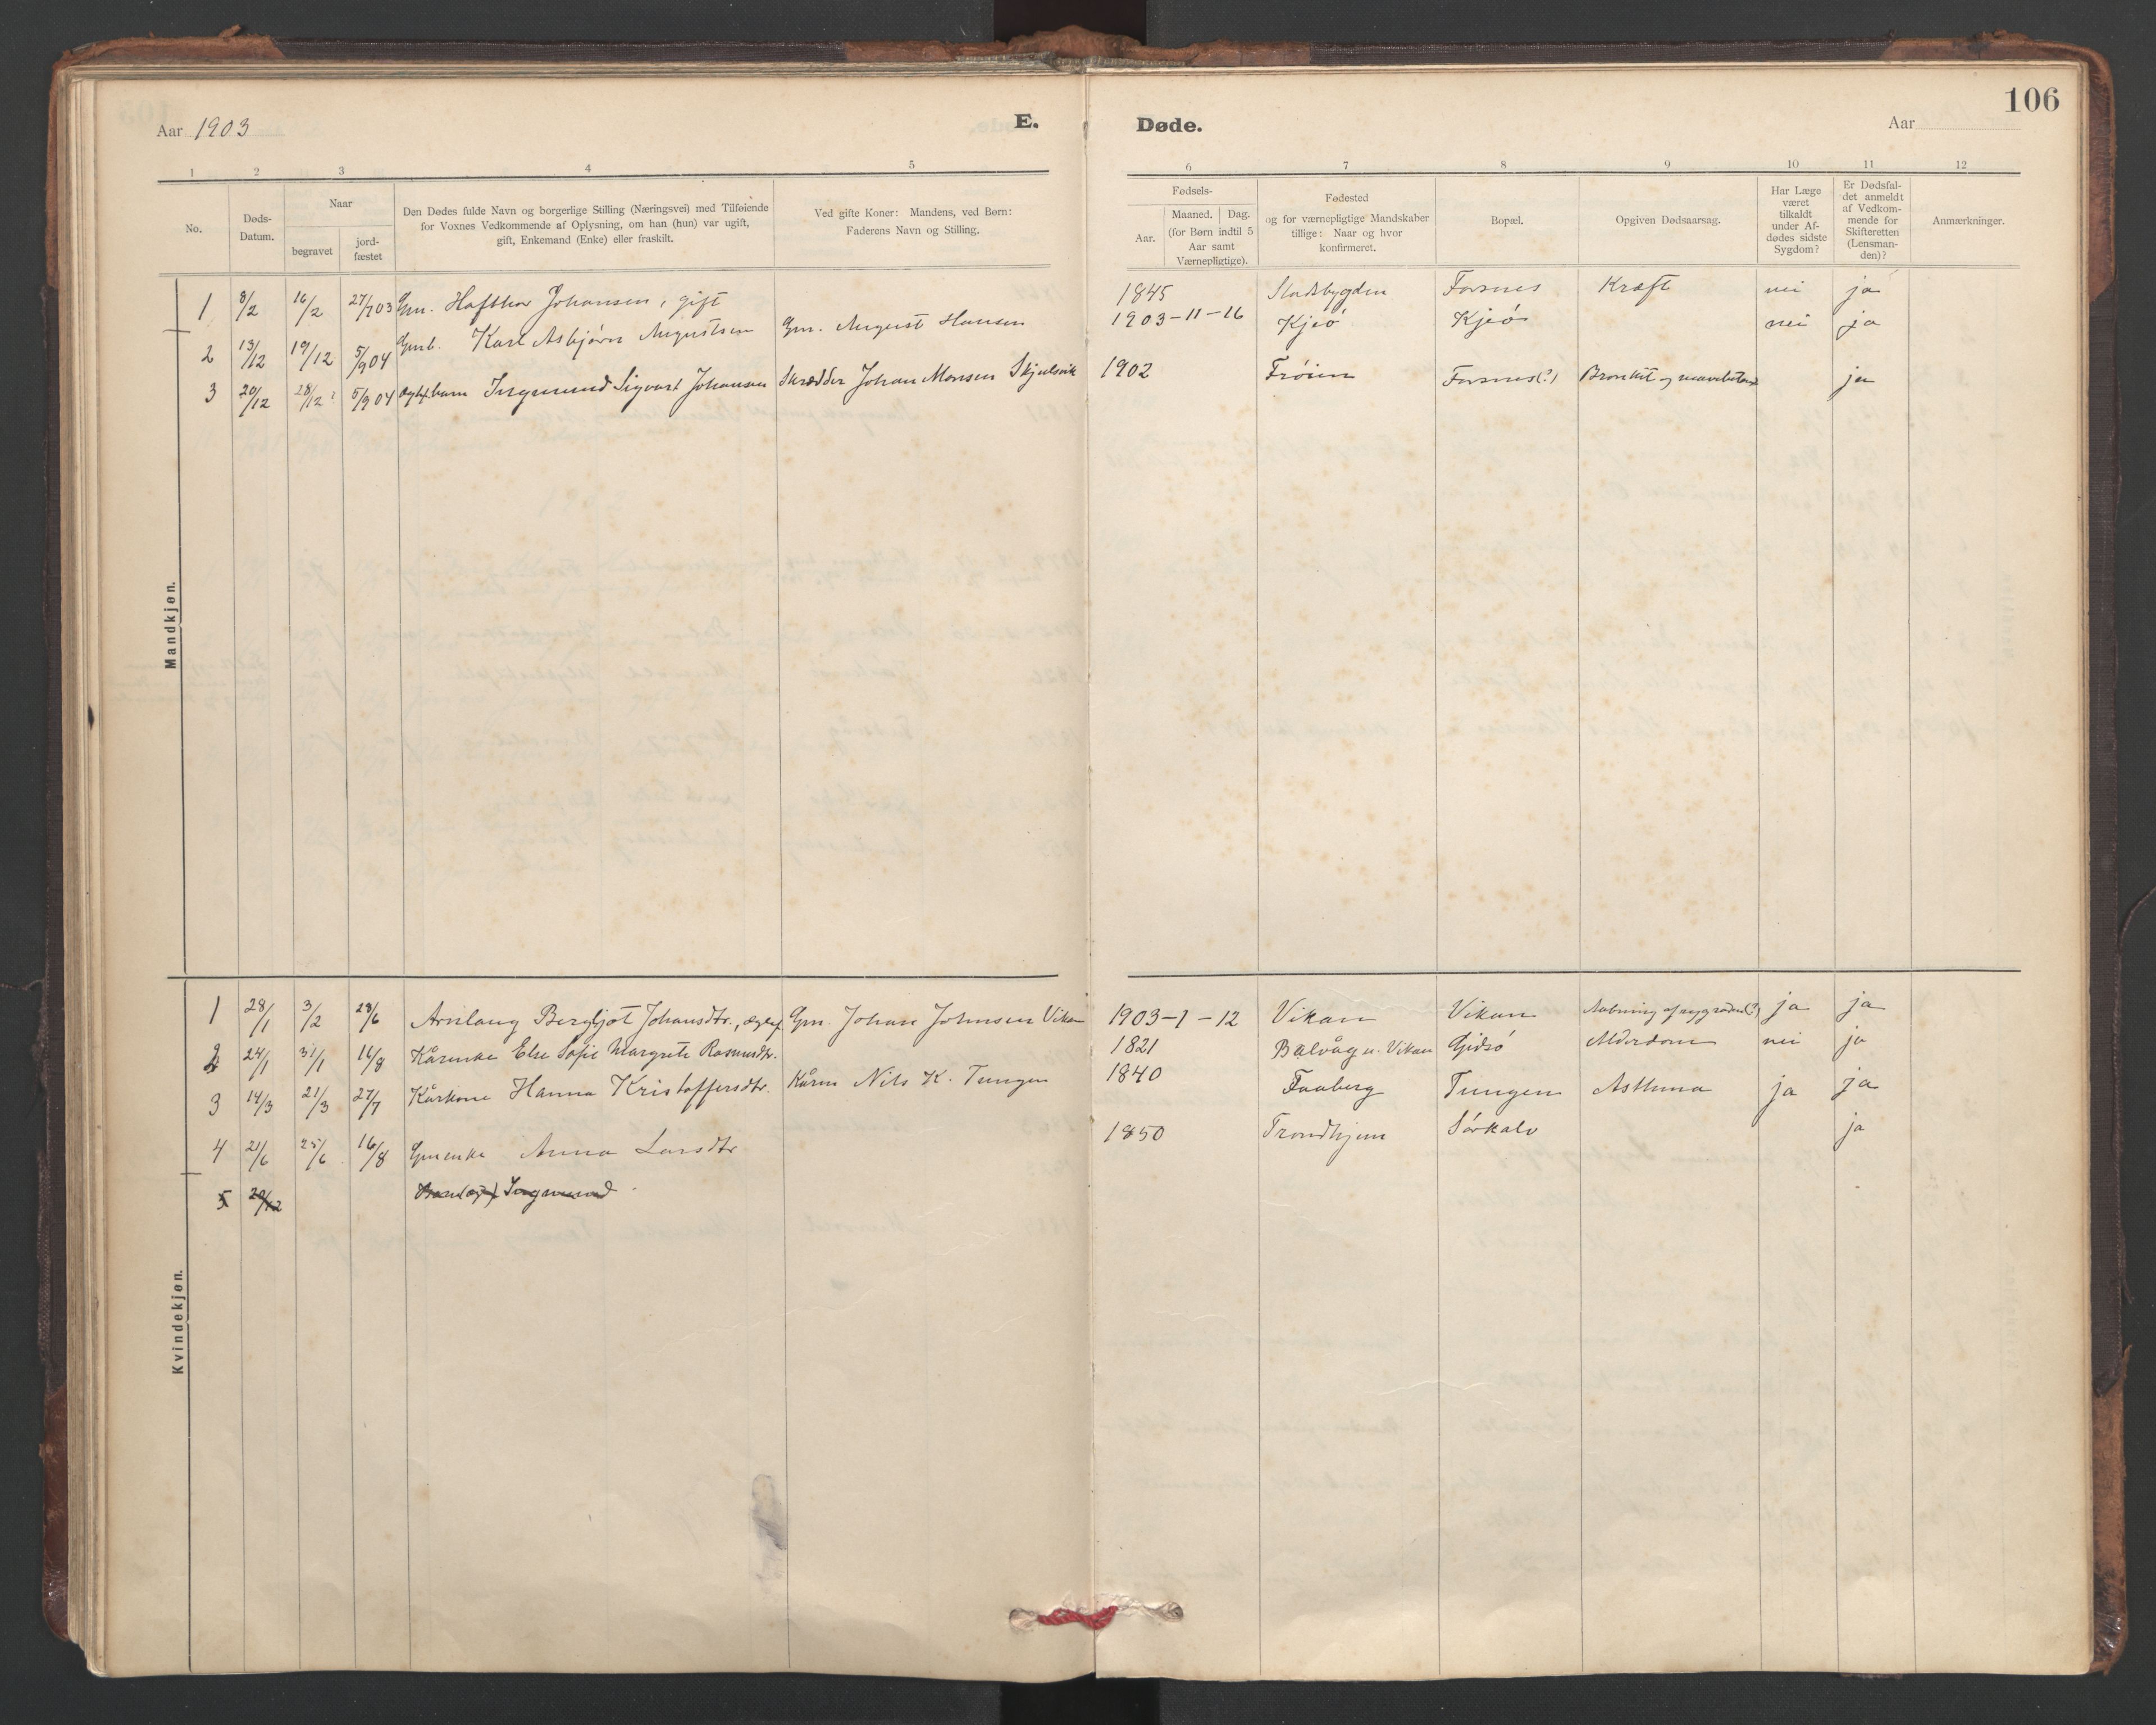 106
Aar 1903
E.
Døde.
Aar
1 2 3 4 5 6 7 8 9 10 11 12
No.
Døds-Datum.
Naar
begravet
jord-fæstet
Den Dødes fulde Navn og borgerlige Stilling (Næringsvei) med Tilføiende
for Voxnes Vedkommende af Oplysning, om han (hun) var ugift,
gift, Enkemand (Enke) eller fraskilt.
Ved gifte Koner: Mandens, ved Børn:
Faderens Navn og Stilling.
Fødsels-
Aar.
Maaned. Dag.
(for Børn indtil 5
Aar samt
Værnepligtige).
Fødested
og for værnepligtige Mandskaber
tillige: Naar og hvor
konfirmeret.
Bopæl.
Opgiven Dødsaarsag.
Har Læge
været
tilkaldt
under Af-
dødes sidste
Sygdom?
Er Dødsfal-
det anmeldt
af Vedkom-
mende for
Skifteretten
(Lensman-
den)?
Anmærkninger.
Mandkjøn.
1 8/2 16/2 27/7 03 Gm. Hafthor Johansen, gift 1845 Stadsbygden Forsnes Kræft nei ja
2 13/12 19/12 5/9 04 Gmb. Karl Asbjørn Augustsen Gm. August Hansen 1903-11-16 Kjeö Kjeö nei ja
3 20/12 28/12? 5/9 04 Ingmund Sigvart Johansen Skrædder Johan Monsen Skjulsvik 1902 Fröien Forsnes(?) Bronkit og ja
Kvindekjøn.
1 28/1 3/2 23/6 Arnlaug Bergljot Johansdtr., Gm. Johan Johnsen Vikan 1903-1-12 Vikan Vikan Aabning af rygraden(?) ja ja
2 24/1 31/1 16/8 Kårenke Else Sofie Margrete Rasmusdtr. 1821 Balvåg u. Vikan Gjdsö Alderdom nei ja
3 14/3 21/3 27/7 Kårkone Hanna Kristoffersdtr. Kårm Nils K. Tungen 1840 Faaberg Tungen Asthma ja ja
4 21/6 25/6 16/8 Gmenke Anna Larsdtr 1850 Trondhjem Sörkalv ja
5 20/12 Ingmund